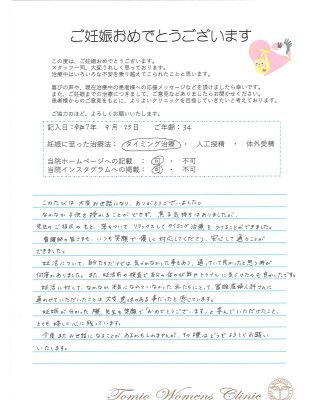 ご妊娠おめでとうございます
この度は、ご妊娠おめでとうございます。
スタッフ一同、大変うれしく思っております。
治療中はいろいろな不安を乗り越えてこられたことと思います。
喜びの声や、現在治療中の患者様への応援メッセージなどを頂けましたら幸いです。
また、ご妊娠までの治療につきまして、ご意見などありましたらお聞かせください。
患者様からのご意見をもとに、よりよいクリニックを目指していきたいと考えております。
ご協力のほど、よろしくお願いいたします。
記入日：令和7年 9月 25日 ご年齢：34
妊娠に至った治療法：タイミング治療・人工授精・体外受精
当院ホームページへの記載：可・不可
当院インスタグラムへの掲載：可・不可
このたびは大変お世話になり、ありがとうございました。
なかなか子供を授かることができず、焦る気持ちはありましたが、
先生のご指示のもと、落ちついてリラックスしてタイミング治療をうけることができました。
看護師の皆さまも、いつも笑顔で優しく対応してくださり、安心して通うことが
できました。
妊活について、自分たちだけでは 事もあり、通っていて良かったと思う時が
何度もありました。また、妊活前の検査で
妊活に対して、なかなか
通わせていただいたことは大変意味のある事だったと感じています。
妊娠が分かった際、先生も笑顔で「おめでとうございます」と喜んでいただけたこと、
とても嬉しく心に残っています。
今後またお世話になることがあるかもしれませんが、その際はどうぞよろしくお願い
いたします。
Tomio Womens Clinic